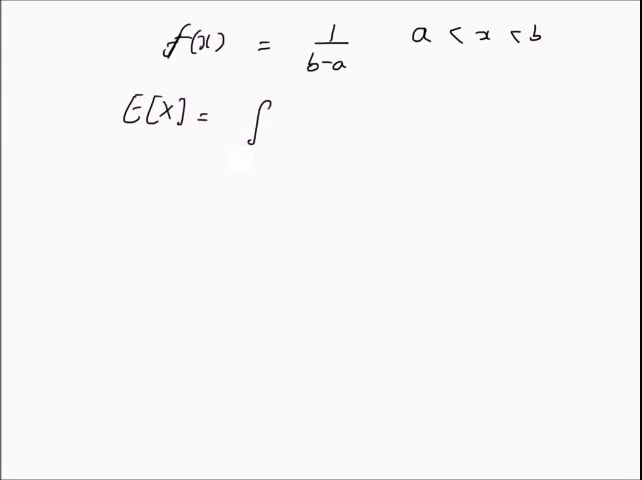 f(x) = 1/(b-a) a < x < b
E[X] = ∫